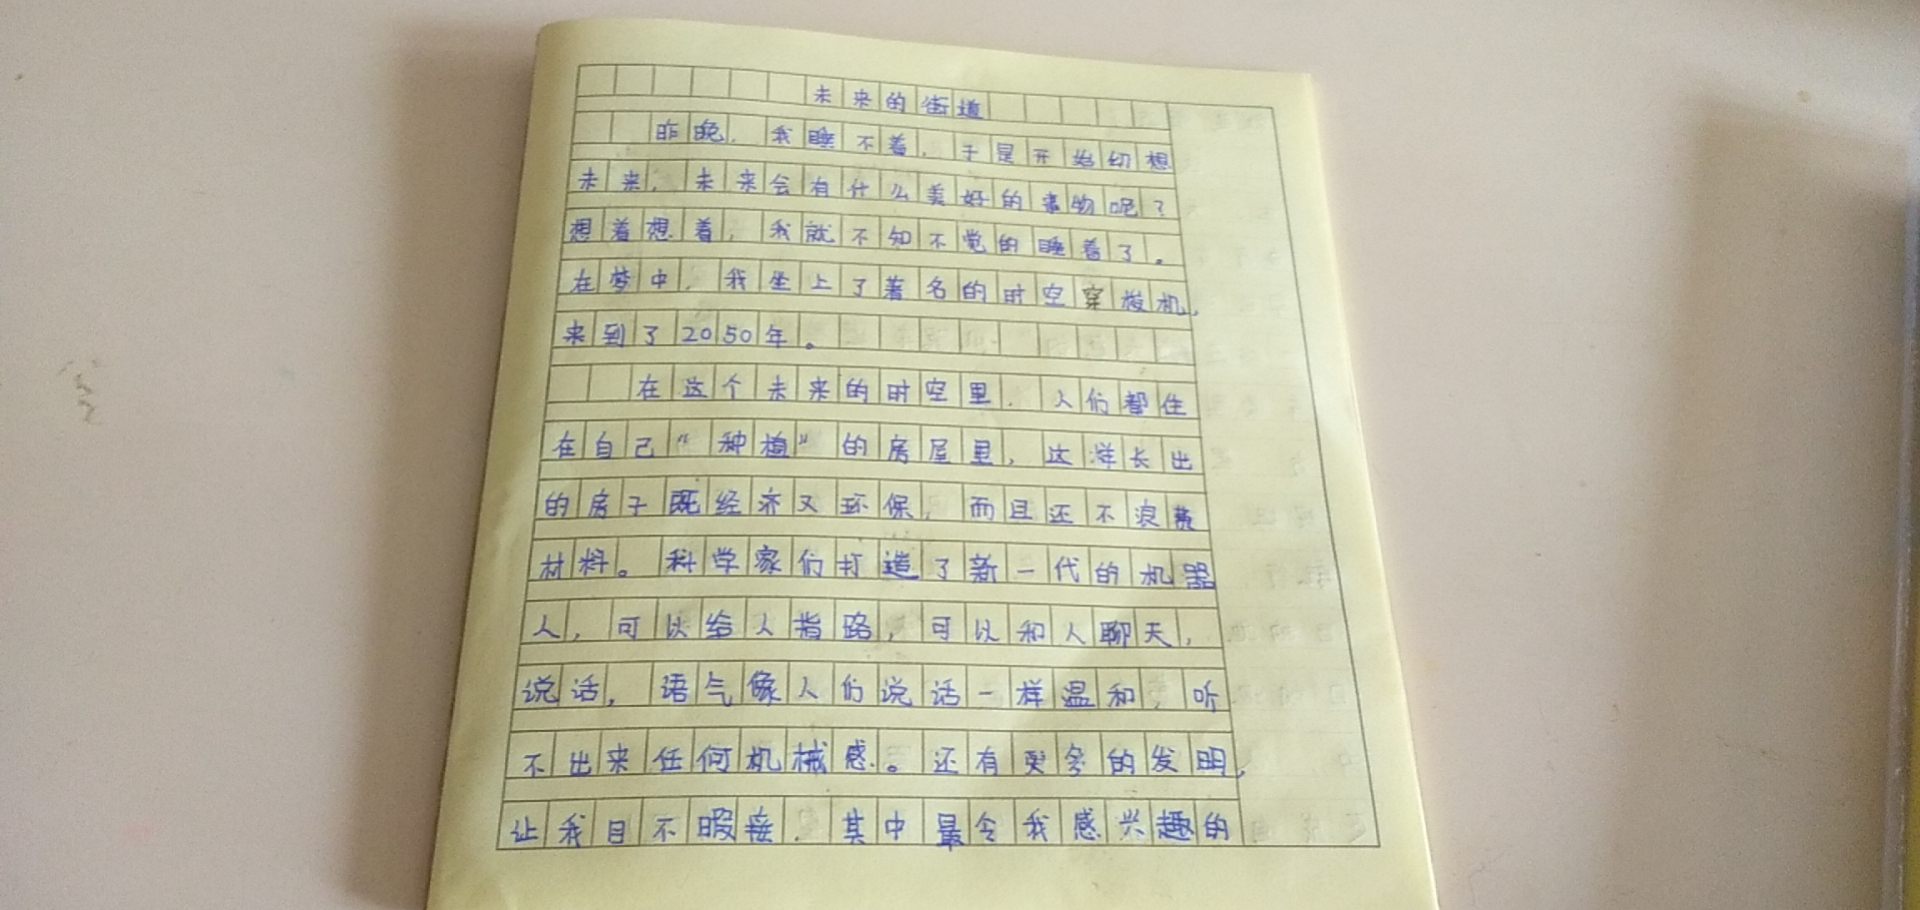 未来的街道
昨晚，我睡不着，于是开始幻想
未来，未来会有什么美好的事物呢？
想着想着，我就不知不觉的睡着了。
在梦中，我坐上了著名的时空穿梭机，
来到了2050年。
在这个未来的时空里，人们都住
在自己“种植”的房屋里，这样长出
的房子既经济又环保，而且还不浪费
材料。科学家们打造了新一代的机器
人，可以给人指路，可以和人聊天，
说话，语气像人们说话一样温和，听
不出来任何机械感。还有更多的发明，
让我目不暇接，其中最令我感兴趣的